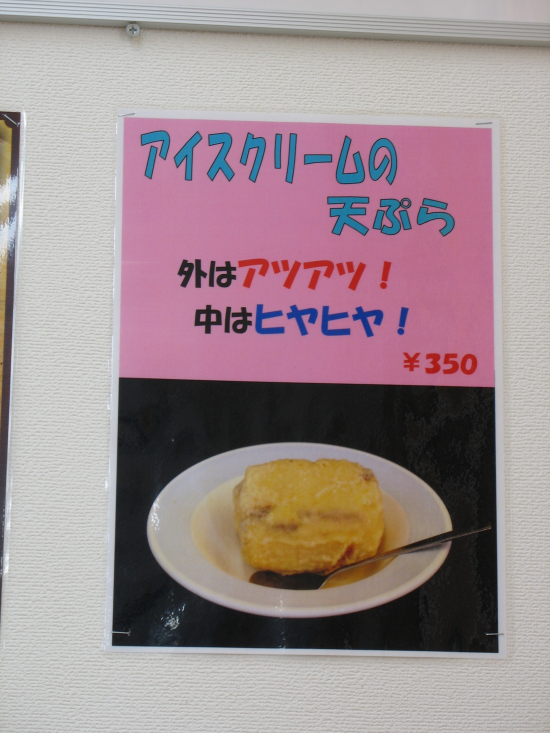 アイスクリームの
天ぷら
外はアツアツ!
中はヒヤヒヤ!
¥350